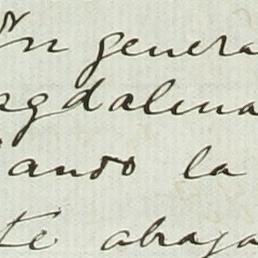 En genera
agdalena
ando la
te abaja